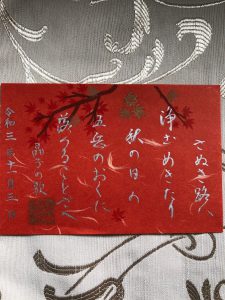 さぬき路は
浄ざめきたり
秋の日の
五岳のおくに
落つることさへ
晶子の歌
令和三年十一月三日